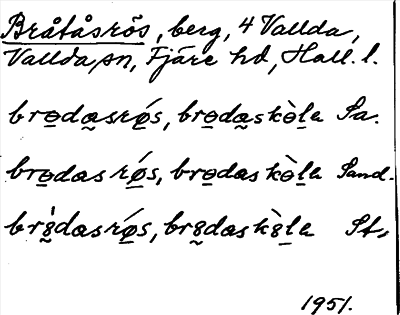 Bråtåsrös, berg, 4 Vallda,
Vallda sn, Fjäre hd, Hall. l.
brọdas̬rǿs, brọdas̬kò̱l̲a Sa.
brọdasrǿs, brọdaskò̱l̲a Sand.
br8̀dasrǿs, br8daskˋ8l̲a St.
1951.